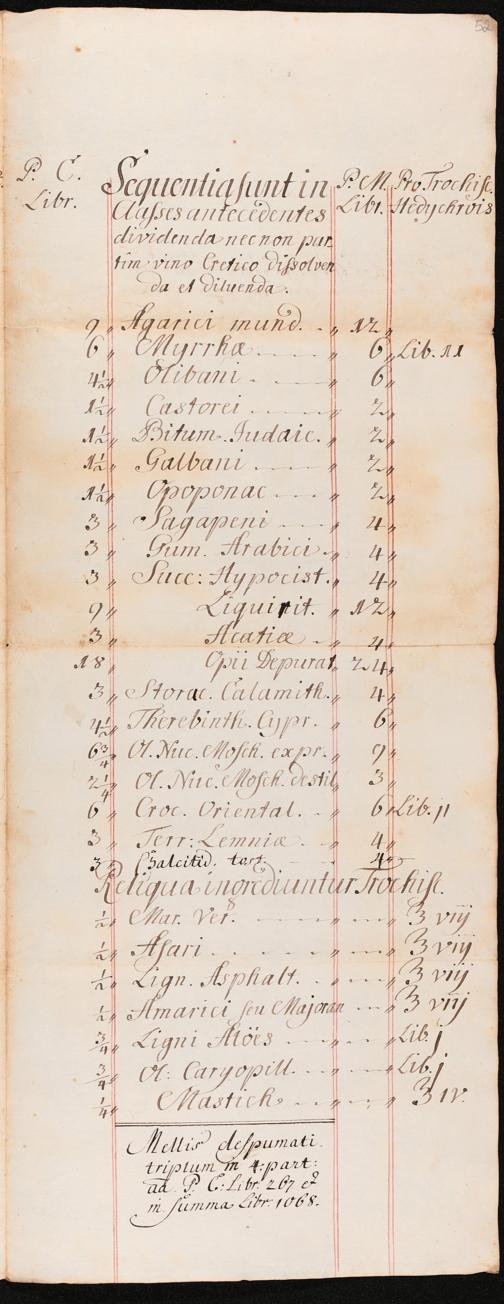 52
P. C. Sequentia sunt in P. M. Pro Trochisc.
Libr. Classes antecedentes Libr. Hedychrois
dividenda nec non par
tim vino Cretico dissolven
da et diluenda.
9 „ Agarici mund. - „ 12 „
6 „ Myrrhæ - - - „ 6 „ Lib. 11
4½ „ Olibani - - - „ 6 „
1½ „ Castorei - - - „ 2 „
1½ „ Bitum. Judaic. „ 2 „
1½ „ Galbani - - - „ 2 „
1½ „ Opoponac - - - „ 2 „
3 „ Sagapeni - - - „ 4 „
3 „ Gum. Arabici - „ 4 „
3 „ Succ: Hypocist. „ 4 „
9 „ Liquirit. „ 12 „
3 „ Acatiæ - „ 4 „
18 „ Opii Depurat. 24 „
3 „ Storac. Calamith. „ 4 „
4½ „ Therebinth. Cypr. „ 6 „
6¾ „ Ol. Nuc. Mosch. expr. „ 9 „
2¼ „ Ol. Nuc. Mosch. destil „ 3 „
6 „ Croc. Oriental. - - „ 6 „ Lib. jj
3 „ Terr: Lemniæ - - „ 4 „
3 „ Chalcitid. tost. - - 4 „
Reliqua ingrediuntur Trochisc.
½ „ Mar. Ver. - - - „ - - „ ℥ viij
½ „ Asari - - - „ - - „ ℥ viij
½ „ Lign. Asphalt. - - „ - - „ ℥ viij
½ „ Amarici seu Majoran - - „ ℥ viij
¾ „ Ligni Aloës - - - „ - - „ Lib. j
¾ „ Ol: Caryopill. - - „ - - „ Lib. j
¼ „ Mastich - - „ - - „ ℥ iv.
Mellis despumati
triplum in 4: part:
ad P. C: Libr. 267 et
in summa Libr. 1068.